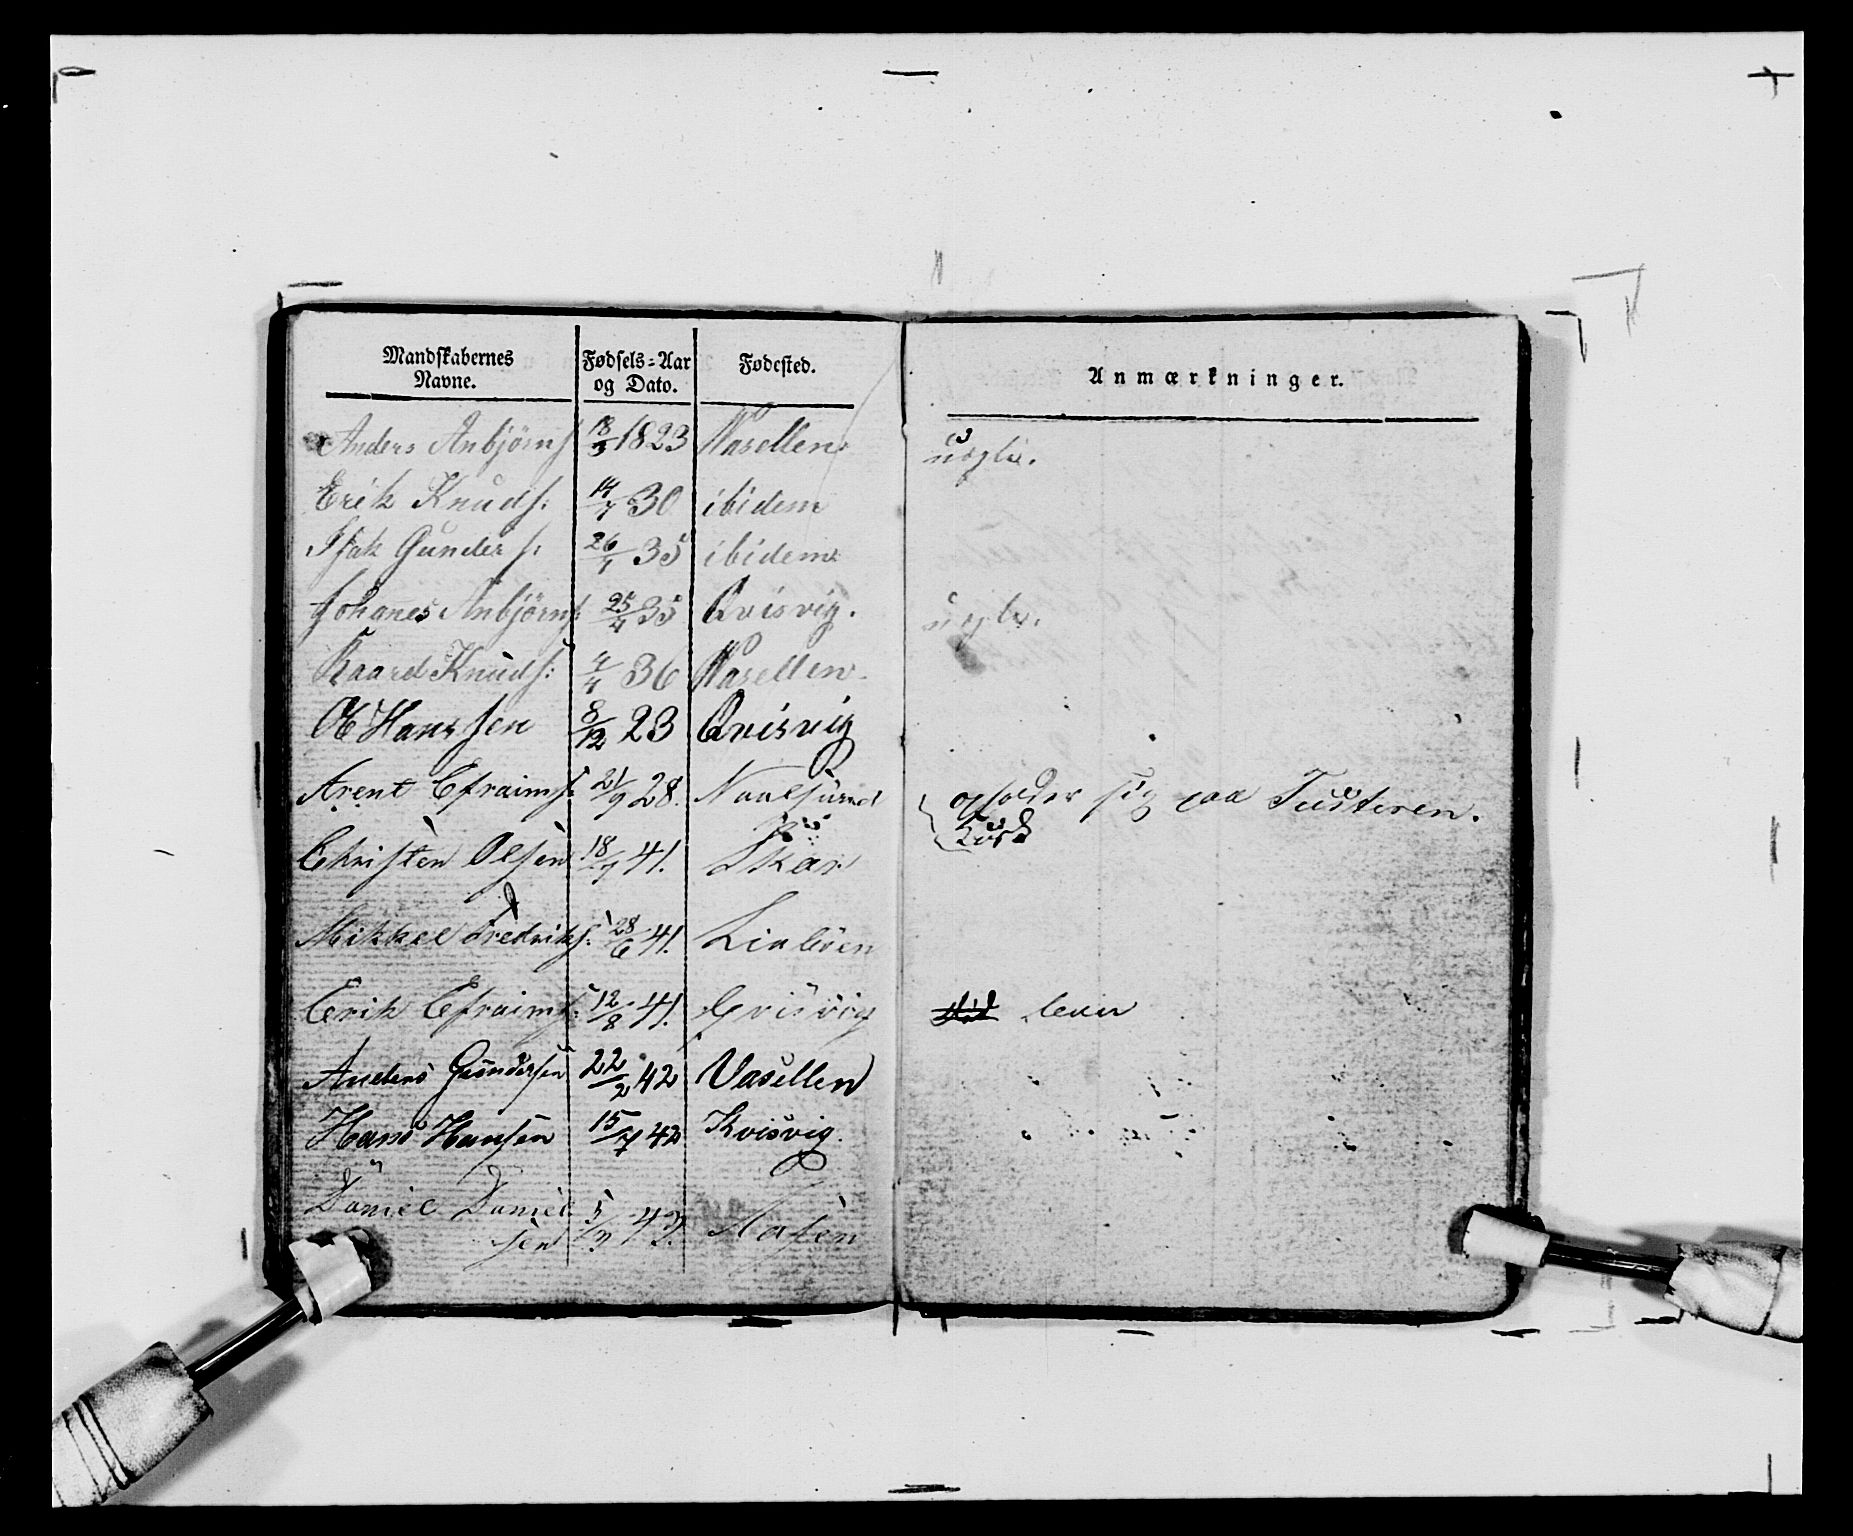 Mandskabernes Navne. Fødsels-Aar og Dato. Fødested. Anmærkninger.
Anders Anbjörns 18/3 1823 Vasellen
Erik Knuds: 14/7 30 ibidem
Isak Gunders: 26/7 35 ibidem
Johanes Anbjörns: 25/4 35 Qvisvig.
Baard Knuds: 4/4 36 Vasellen
Ol Hanssen 8/12 23 Qvisvig
Arent Efraims: 21/9 28. opholder sig paa Tusteren.
Christen Olsen 18/7 41. Skar
Mikkel Fredriks: 28/6 41. Linböen
Erik Efraims: 12/8 41. Qvisvig lever
Anders Gundersen 22/2 42 Vasellen
Hans Hansen 15/7 42 Kvisvig.
Daniel Daniel
sen 43.